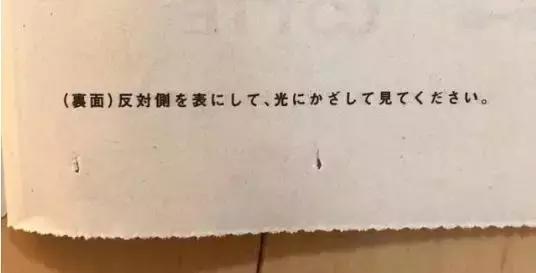 (裏面)反対側を表にして、光にかざして見てください。